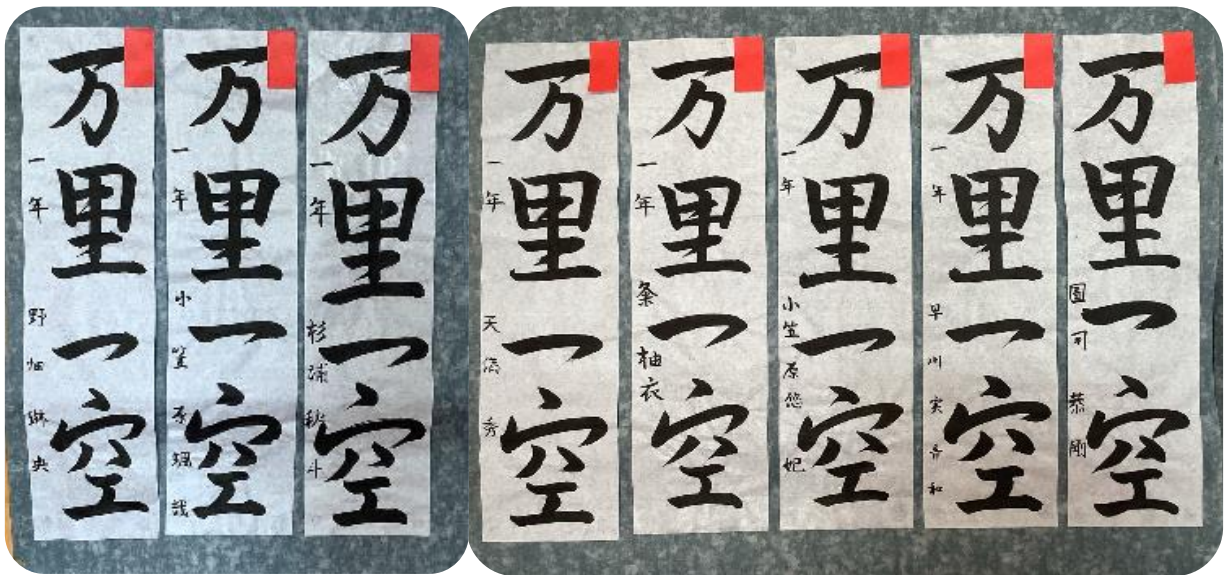 万里一空
一年 野畑琳央
万里一空
一年 小笠原颯
万里一空
一年 杉浦秋斗
万里一空
一年 天 秀
万里一空
一年 粂柚衣
万里一空
一年 小笠原悠妃
万里一空
一年 早川実 和
万里一空
圓司 恭剛